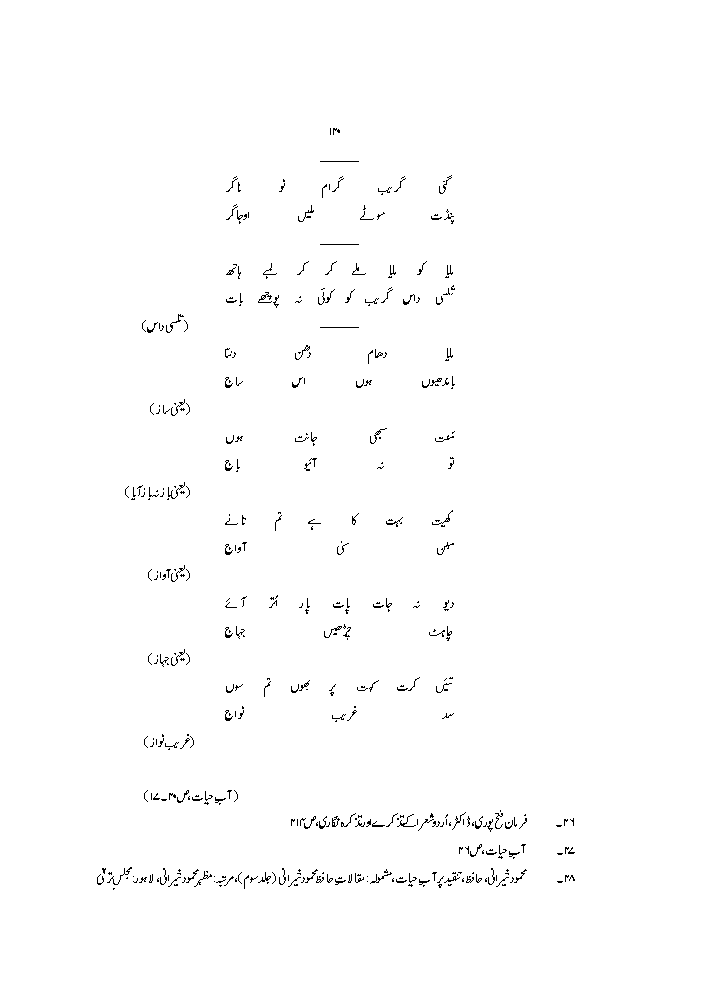 ۱۳۰
گئی گریب گرام نو ناگر
پنڈت موٹے ملیں اوجاگر
مایا کو مایا ملے کر کر لمبے ہاتھ
تلسی داس گریب کو کوئی نہ پوچھے بات
(تلسی داس)
مایا دھام دھن ونتا
باندھیوں ہوں اس ساج
(یعنی ساز)
سنت سبھی جانت ہوں
تو نہ آئیو باج
(یعنی باز نہ باز آیا)
کھیت بہت کا ہے تم تانے
سنی آواج
(یعنی آواز)
دیو نہ جات پات پار اتر آئے
چاہٹ چڑھیں جہاج
(یعنی جہاز)
تئیں کرت کہت پر بھوں تم سوں
سد غریب نواج
(غریب نواز)
(آب حیات، ص۲۰۔۱۷)
۲۶۔ فرمان فتح پوری، ڈاکٹر، اُردو شعرا کے تذکرے اور تذکرہ نگاری، ص۲۱۴
۲۷۔ آب حیات، ص۲۶
۲۸۔ محمود شیرانی، حافظ، تنقید پر آب حیات، مشمولہ: مقالات حافظ محمود شیرانی (جلد سوم)، مرتبہ: مظہر محمود شیرانی، لاہور: مجلس ترقی